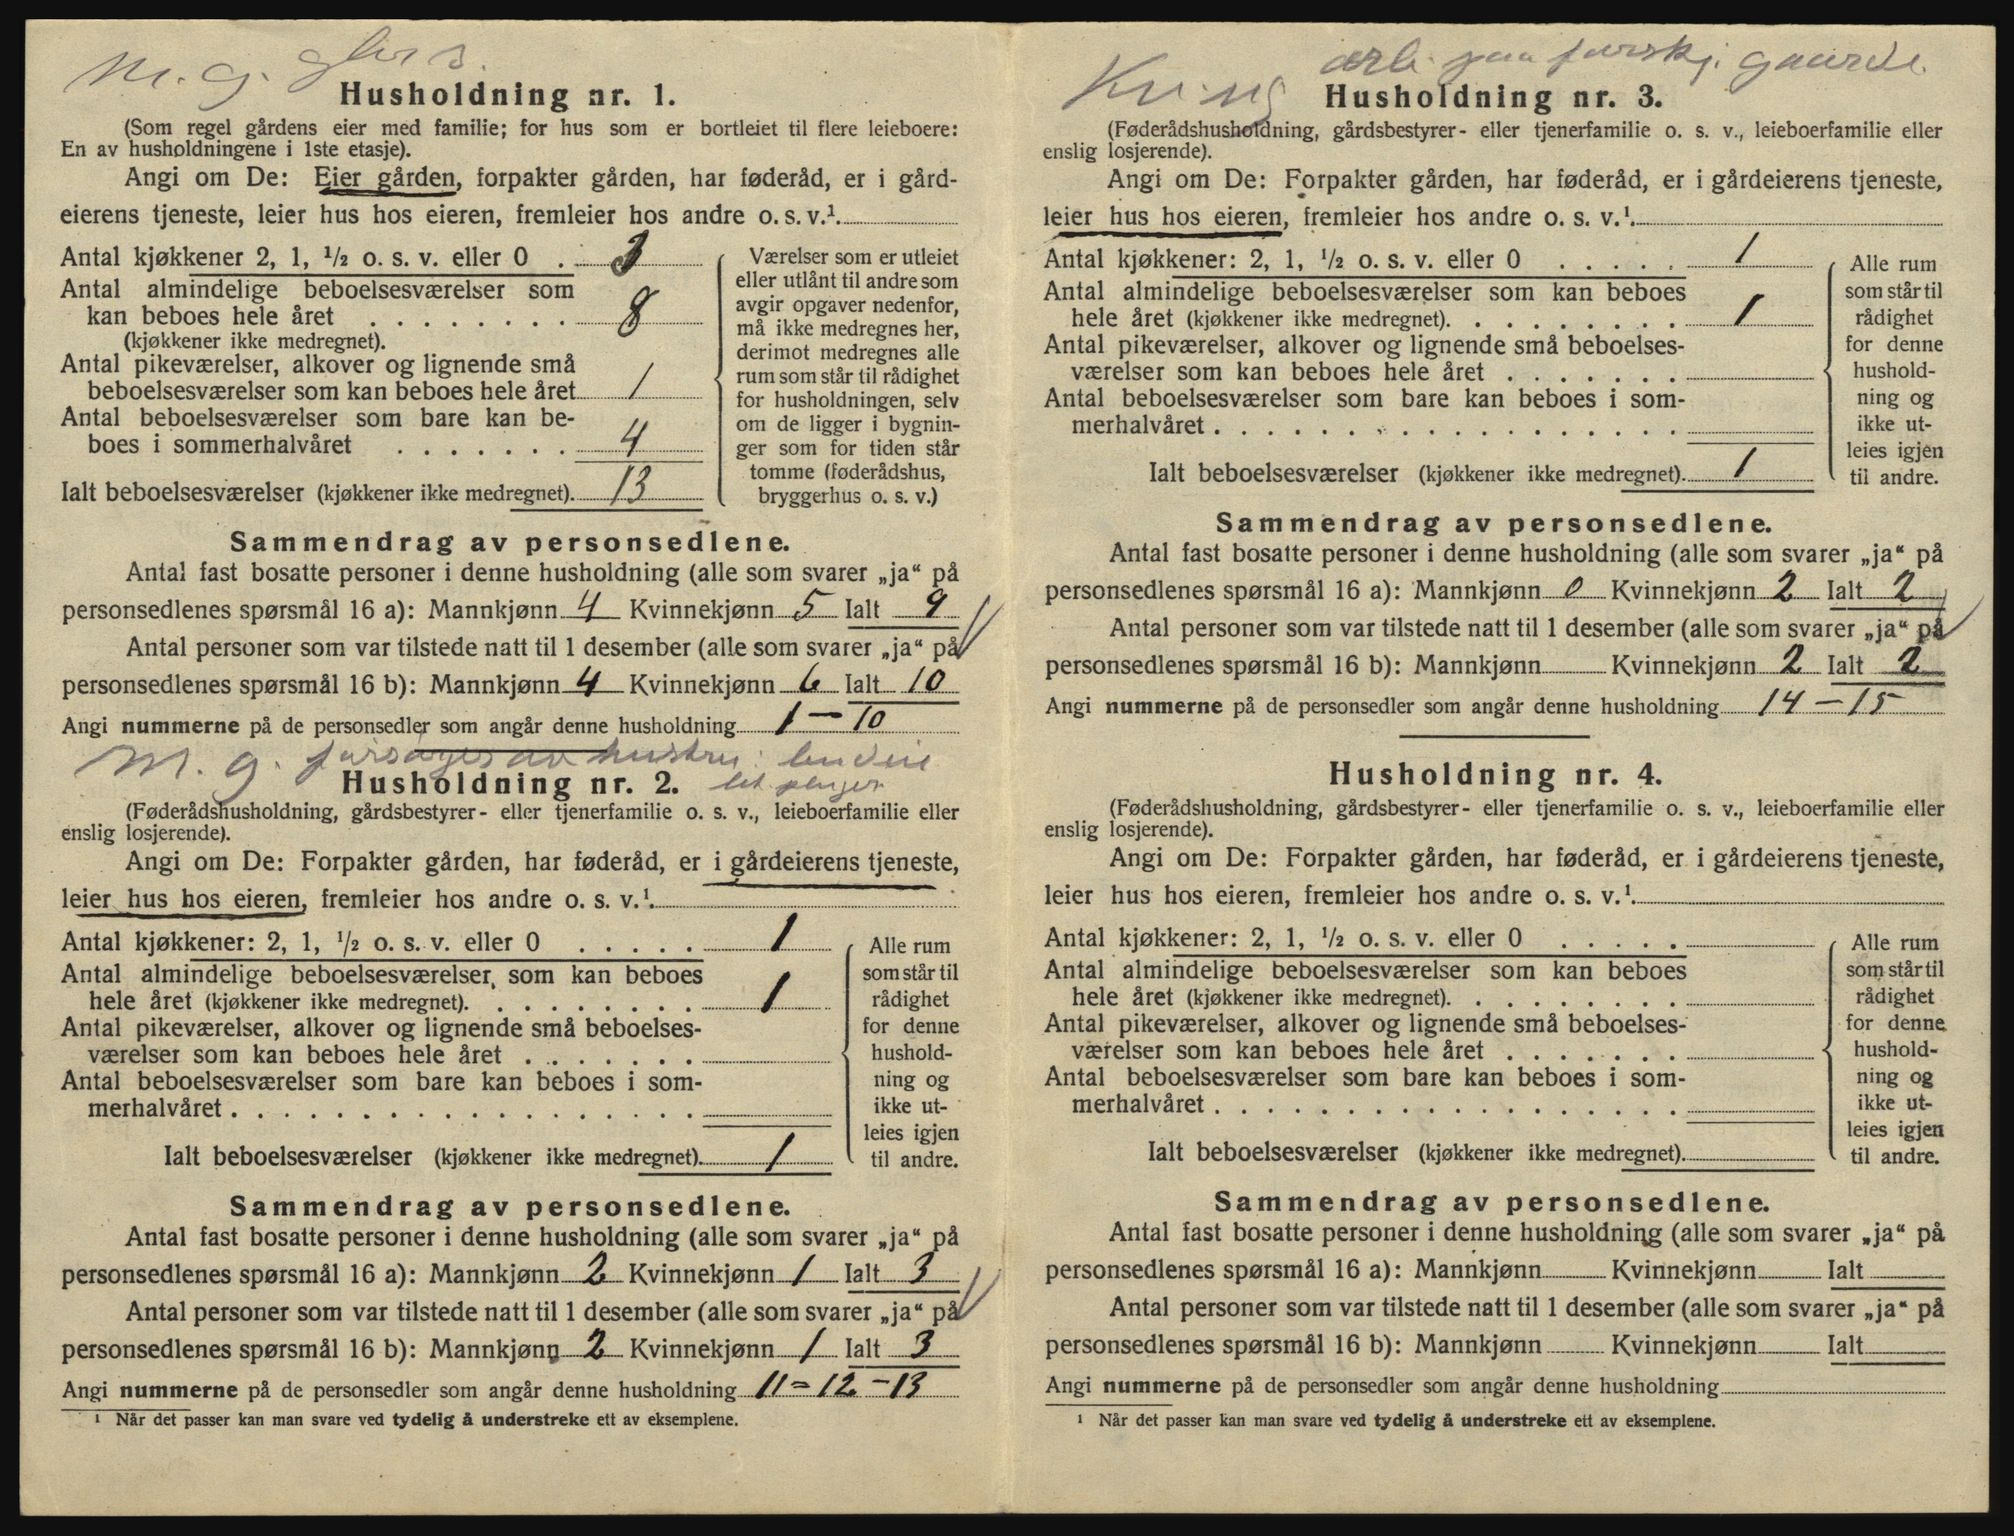 M. g. gbr s.
Husholdning nr. 1.
(Som regel gårdens eier med familie; for hus som er bortleiet til flere leieboere:
En av husholdningene i 1ste etasje).
Angi om De: Eier gården, forpakter gården, har føderåd, er i gård-
eierens tjeneste, leier hus hos eieren, fremleier hos andre o. s. v.¹.
Antal kjøkkener 2, 1, ½ o. s. v. eller 0 .
Antal almindelige beboelsesværelser som
kan beboes hele året . . . . . . . . 8
(kjøkkener ikke medregnet).
Antal pikeværelser, alkover og lignende små
beboelsesværelser som kan beboes hele året 1
Antal beboelsesværelser som bare kan be-
boes i sommerhalvåret . . . . . . . 4
Ialt beboelsesværelser (kjøkkener ikke medregnet). 13
Værelser som er utleiet
eller utlånt til andre som
avgir opgaver nedenfor,
må ikke medregnes her,
derimot medregnes alle
rum som står til rådighet
for husholdningen, selv
om de ligger i bygnin-
ger som for tiden står
tomme (føderådshus,
bryggerhus o. s. v.)
Sammendrag av personsedlene.
Antal fast bosatte personer i denne husholdning (alle som svarer „ja“ på
personsedlenes spørsmål 16 a): Mannkjønn 4 Kvinnekjønn 5 Ialt 9
Antal personer som var tilstede natt til 1 desember (alle som svarer „ja“ på
personsedlenes spørsmål 16 b): Mannkjønn 4 Kvinnekjønn 6 Ialt 10
Angi nummerne på de personsedler som angår denne husholdning 1 – 10
M. g. forsørges av hustru
Husholdning nr. 2.
(Føderådshusholdning, gårdsbestyrer- eller tjenerfamilie o. s. v., leieboerfamilie eller
enslig losjerende).
Angi om De: Forpakter gården, har føderåd, er i gårdeierens tjeneste,
leier hus hos eieren, fremleier hos andre o. s. v.¹.
Antal kjøkkener: 2, 1, ½ o. s. v. eller 0 . . . . . 1
Antal almindelige beboelsesværelser, som kan beboes
hele året (kjøkkener ikke medregnet). . . . . . . . . 1
Antal pikeværelser, alkover og lignende små beboelses-
værelser som kan beboes hele året . . . . . . .
Antal beboelsesværelser som bare kan beboes i som-
merhalvåret . . . . . . . . . . . . . . . . . .
Ialt beboelsesværelser (kjøkkener ikke medregnet). 1
Alle rum
som står til
rådighet
for denne
hushold-
ning og
ikke ut-
leies igjen
til andre.
Sammendrag av personsedlene.
Antal fast bosatte personer i denne husholdning (alle som svarer „ja“ på
personsedlenes spørsmål 16 a): Mannkjønn 2 Kvinnekjønn 1 Ialt 3
Antal personer som var tilstede natt til 1 desember (alle som svarer „ja“ på
personsedlenes spørsmål 16 b): Mannkjønn 2 Kvinnekjønn 1 Ialt 3
Angi nummerne på de personsedler som angår denne husholdning 11 – 12 – 13
¹ Når det passer kan man svare ved tydelig å understreke ett av eksemplene.
Kv. ug arb. paa forskj. gaarde
Husholdning nr. 3.
(Føderådshusholdning, gårdsbestyrer- eller tjenerfamilie o. s. v., leieboerfamilie eller
enslig losjerende).
Angi om De: Forpakter gården, har føderåd, er i gårdeierens tjeneste,
leier hus hos eieren, fremleier hos andre o. s. v.¹.
Antal kjøkkener: 2, 1, ½ o. s. v. eller 0 . . . . . 1
Antal almindelige beboelsesværelser som kan beboes
hele året (kjøkkener ikke medregnet). . . . . . . . . 1
Antal pikeværelser, alkover og lignende små beboelses-
værelser som kan beboes hele året . . . . . . .
Antal beboelsesværelser som bare kan beboes i som-
merhalvåret . . . . . . . . . . . . . . . . . .
Ialt beboelsesværelser (kjøkkener ikke medregnet). 1
Alle rum
som står til
rådighet
for denne
hushold-
ning og
ikke ut-
leies igjen
til andre.
Sammendrag av personsedlene.
Antal fast bosatte personer i denne husholdning (alle som svarer „ja“ på
personsedlenes spørsmål 16 a): Mannkjønn 0 Kvinnekjønn 2 Ialt 2
Antal personer som var tilstede natt til 1 desember (alle som svarer „ja“ på
personsedlenes spørsmål 16 b): Mannkjønn Kvinnekjønn 2 Ialt 2
Angi nummerne på de personsedler som angår denne husholdning 14 – 15
Husholdning nr. 4.
(Føderådshusholdning, gårdsbestyrer- eller tjenerfamilie o. s. v., leieboerfamilie eller
enslig losjerende).
Angi om De: Forpakter gården, har føderåd, er i gårdeierens tjeneste,
leier hus hos eieren, fremleier hos andre o. s. v.¹.
Antal kjøkkener: 2, 1, ½ o. s. v. eller 0 . . . . .
Antal almindelige beboelsesværelser som kan beboes
hele året (kjøkkener ikke medregnet). . . . . . . . .
Antal pikeværelser, alkover og lignende små beboelses-
værelser som kan beboes hele året . . . . . . .
Antal beboelsesværelser som bare kan beboes i som-
merhalvåret . . . . . . . . . . . . . . . . . .
Ialt beboelsesværelser (kjøkkener ikke medregnet).
Alle rum
som står til
rådighet
for denne
hushold-
ning og
ikke ut-
leies igjen
til andre.
Sammendrag av personsedlene.
Antal fast bosatte personer i denne husholdning (alle som svarer „ja“ på
personsedlenes spørsmål 16 a): Mannkjønn Kvinnekjønn Ialt
Antal personer som var tilstede natt til 1 desember (alle som svarer „ja“ på
personsedlenes spørsmål 16 b): Mannkjønn Kvinnekjønn Ialt
Angi nummerne på de personsedler som angår denne husholdning
¹ Når det passer kan man svare ved tydelig å understreke ett av eksemplene.